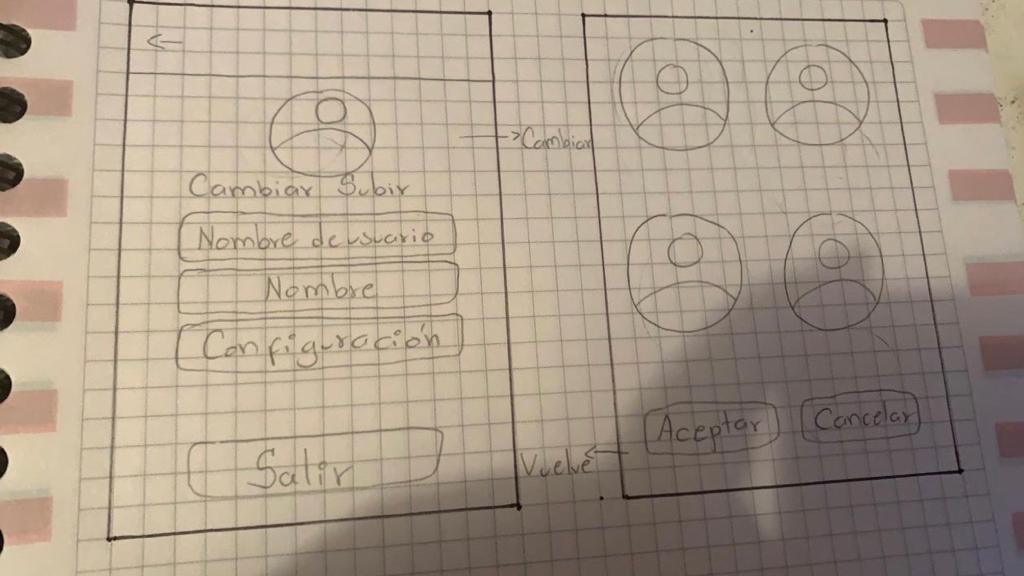 Cambiar Subir
Nombre de usuario
Nombre
Configuración
Salir
Cambiar
Aceptar
Cancelar
Vuelve